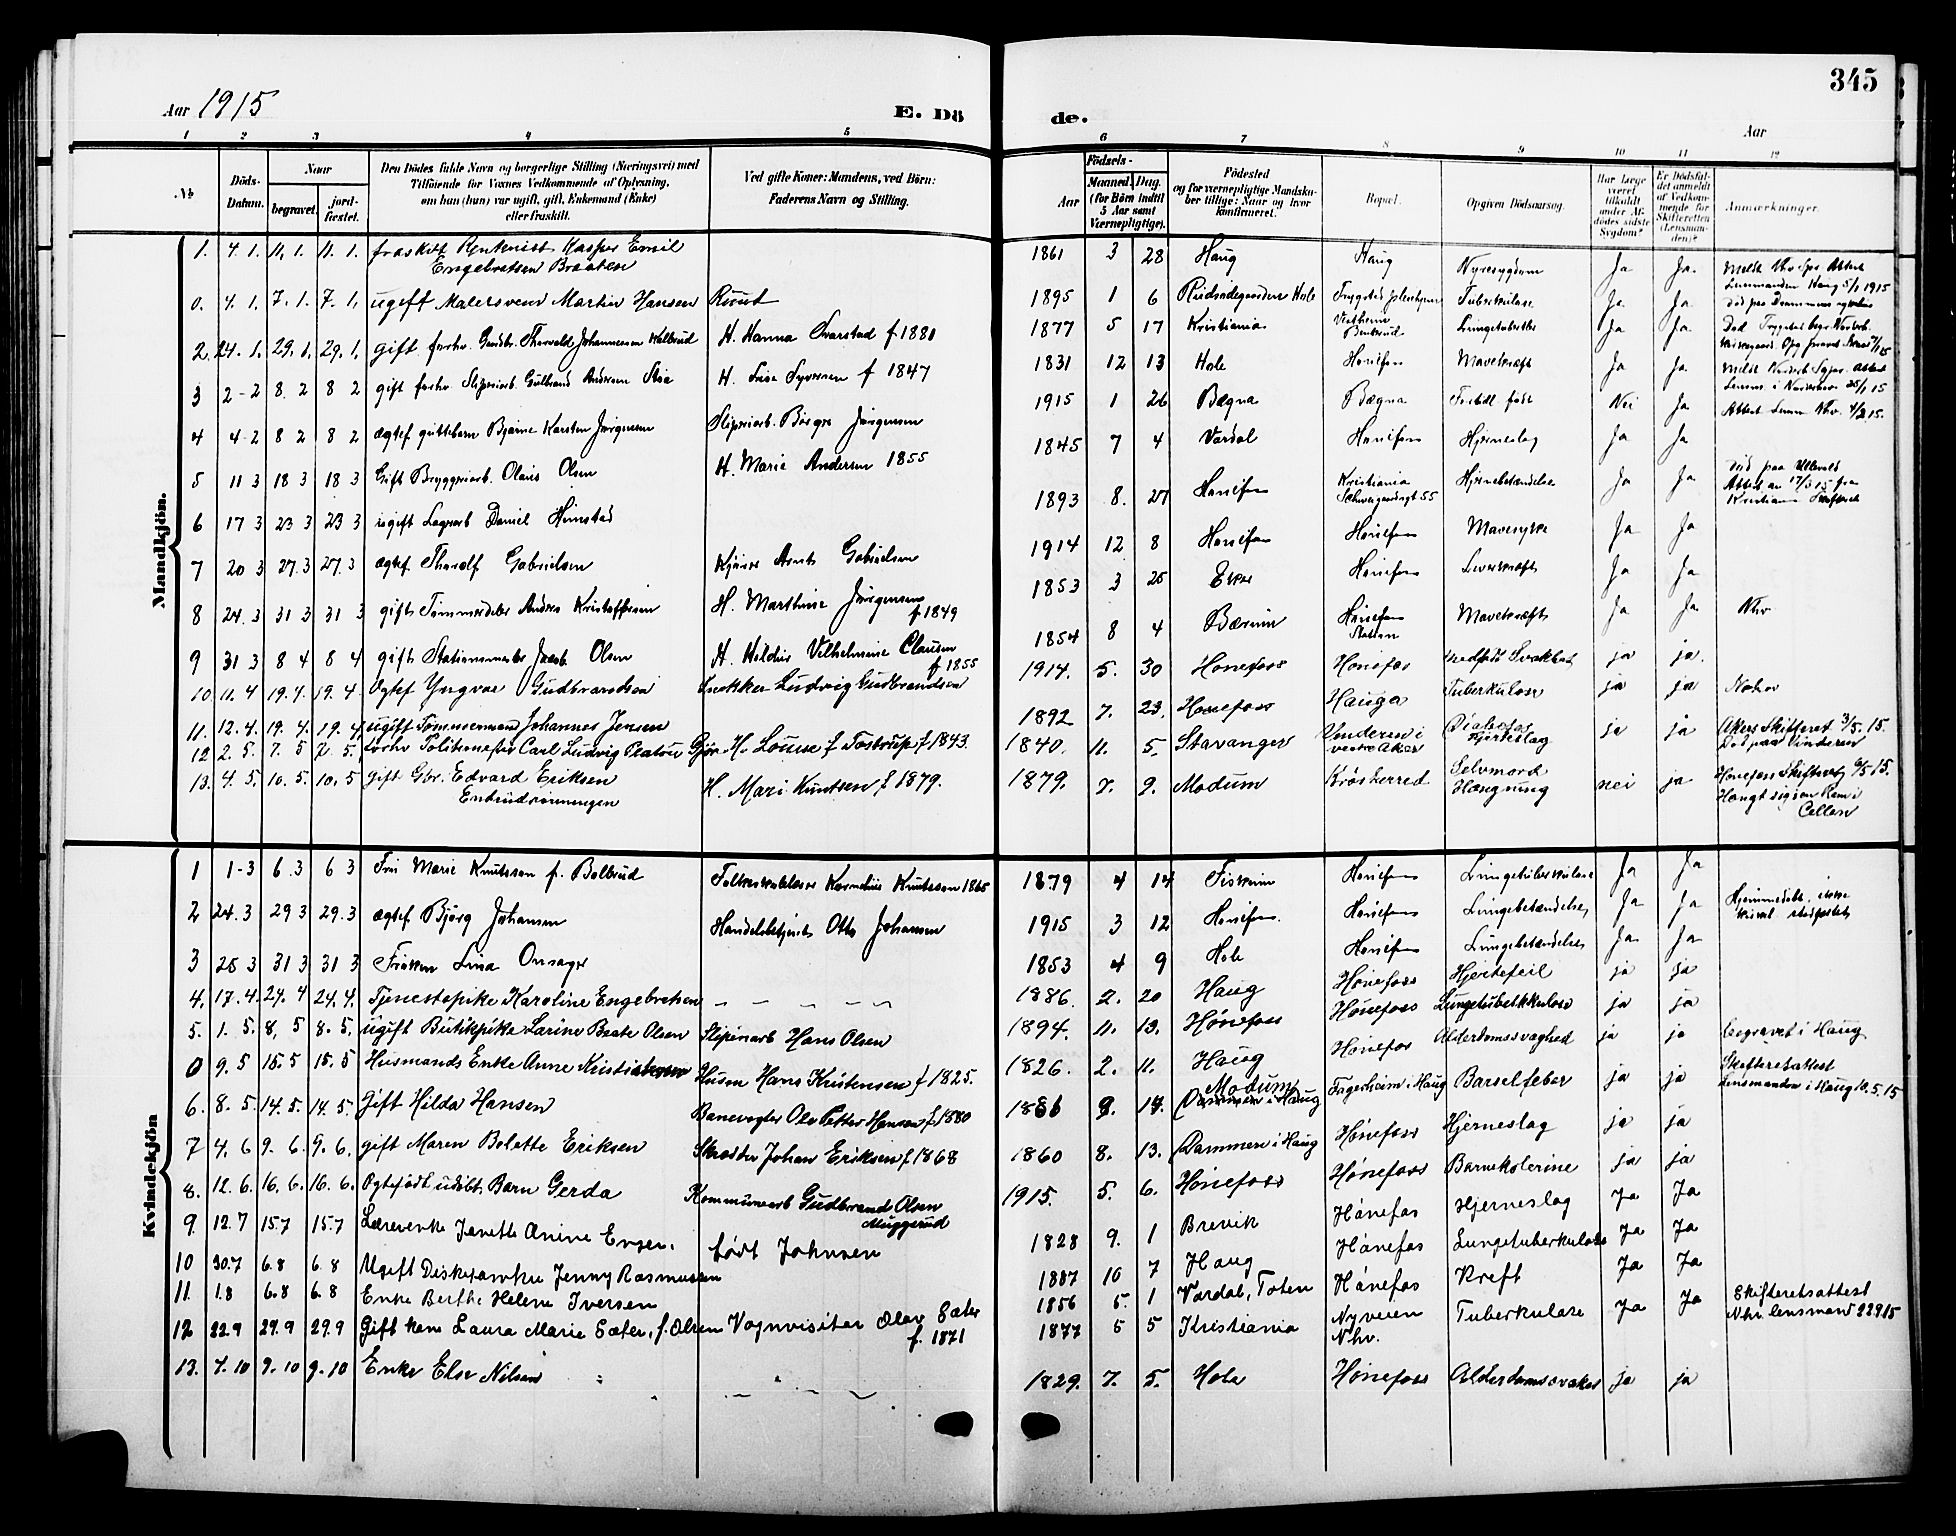 345
Aar 1915
E. Dö
de.
Aar
1 2 3 4 5
6 7 8 9 10 11 12
No
Döds-
Datum.
Naar
begravet.
jord-
fæstet.
Den Dödes fulde Navn og borgerlige Stilling (Næringsvei) med
Tilföiende for Voxnes Vedkommende af Oplysning,
om han (hun) var ugift, gift, Enkemand (Enke)
eller fraskilt.
Ved gifte Koner: Mandens, ved Börn:
Faderens Navn og Stilling.
Födsels-
Aar
Maaned. Dag.
(for Börn indtil
5 Aar samt
Værnepligtige).
Födested
og for værnepligtige Mandska-
ber tillige: Naar og hvor
konfirmeret.
Bopæl.
Opgiven Dödsaarsag.
Har Læge
været
tilkaldt
under Af-
dödes sidste
Sygdom?
Er Dödsfal-
det anmeldt
af Vedkom-
mende for
Skifteretten
(Lensman-
den)?
Anmærkninger.
Mandkjön.
1. 4. 1. 11. 1. 11. 1. fraskilt Rentenist Kasper Emil
Engebretsen Braaten
1861 3 28 Haug Haug Nyresygdom Ja Ja.
Lensmanden Haug 5/1 1915
0. 4. 1. 7. 1. 7. 1. ugift Malersvend Martin Hansen Ruud
1895 1 6 Hole Tuberkulose Ja Ja
2. 24. 1. 29. 1. 29. 1. gift forhv. Gaardbr. Thorvald Johannessen H. Hanna Svarstad f 1880
1877 5 17 Kristiania Lungetuberkl Ja Ja
3 2-2 8. 2 8 2 gift forhv Sliperiarb. Gulbrand Andersen H. Syversen f 1847
1831 12 13 Hole Hønefos Mavekræft Ja Ja
4 4-2 8 2 8 2 ægtef guttebarn Bjarne Karsten Jørgensen Sliperiarb. Børge Jørgensen
1915 1 26 Bægna Bægna født Nei Ja Attest Lensm Nhv. 4/2 15.
5 11 3 18 3 18 3 Gift Bryggeriarb. Olaus Olsen H. Marie Andersen 1855
1845 7 4 Vardal Hønefos Hjerneslag Ja Ja
6 17 3 23 3 23 3 ugift Lagerarb Daniel Himstad
1893 8. 27 Hønefos Kristiania
Schweigaardsgt 55 Hjernebetændelse Ja Ja
Død paa Ullevold
7 20 3 27. 3 27. 3 ægtef. Thoralf Gabrielsen Kjører Arnt Gabrielsen
1914 12 8 Hønefos Hønefos Mavesyke Ja Ja
8 24. 3 31 3 31 3 gift Tømmerdeler Anders Kristoffersen H. Marthine Jørgensen
f 1849
1853 3 25 Eker Hønefos Leverkræft Ja Ja
9 31 3 8 4 8 4 gift Stationsmester Jacob Olsen H. Vilhelmine Clausen
f 1855
1854 8 4 Bærum Hønefos
Mavekræft Ja Ja Nhv
10 11. 4 19. 4. 19. 4. Ægtef Yngvar Gudbrandsen Snekker Ludvig Gudbrandsen
1914. 5. 30 Hønefoss Hønefos medfødt Svakhet ja ja.
11. 12. 4. 19. 4. 19. 4. ugift Tømmermand Johannes Jensen
1892 7. 23. Hønefoss Hauga Tuberkulose ja ja
12 2. 5. 7. 5 7. 5. forhv Politimester Carl Ludvig Platou Gjør. H. Louise f Tostrup f 1843.
1840. 11. 5. Stavanger Vinderen i
vestre Aker Diabetes
Hjerteslag ja ja Akers Skifteret 3/5. 15.
Død paa Vinderen
13. 4. 5. 10. 5. 10. 5 gift Gbr. Edvard Eriksen
H. Mari Knutsen f 1879.
1879. 7. 9. Modum Krøsherred Selvmord
Hængning nei ja Hønefoss Skifteret 6/5 15.
Hængt sig i en Rem i
Cellen
Kvindekjön
1 1-3 6. 3 6 3 Fru Marie Knutsson f. Bolbrud Folkeskolelærer Kornelius Knutsson 1865
1879 4 14 Fiskum Hønefos Lungetuberkulose Ja Ja
2 24. 3 29 3 29. 3 ægtef Bjørg Johansen Handelsbetjent Otto Johansen
1915 3 12 Hønefos. Hønefos Lungebetændelse Ja Ja Hjemmedøbt, ikke
stadfæstet
3 25 3 31 3 31 3 Frøken Lina Onsager
1853 4 9 Hole Hønefos Lungebetændelse Ja Ja
4. 17. 4. 24. 4 24. 4. Tjenestepike Karoline Engebretsen – – – – –
1886. 2. 20 Haug Hønefoss Hjertefeil ja ja
5. 1. 5. 8, 5 8. 5. ugift Butikpike Larine Beate Olsen Sliperiarb Hans Olsen
1894. 11. 13. Hønefoss Hønefoss Lungetuberkkulose ja ja
0 9. 5 15. 5 15. 5 Husmands Enke Anne Kristiansen Husm Hans Kristensen f 1825.
1826. 2. 11. Haug Hønefos Alderdomssvaghed ja ja begravet i Haug
6. 8. 5 14. 5. 14. 5. Gift Hilda Hansen Banevogter Olv Petter Hansen f 1880
1886 9. 14. Modum
Dammen i Haug Fagerheim i Haug Barselfeber ja ja Skifteretsattest
Lensmanden i Haug 10. 5. 15
7 4. 6 9. 6. 9. 6. gift Maren Bolette Eriksen Skrædder Johan Eriksen f 1868
1860 8. 13. Dammen i Haug Hønefoss Hjerneslag ja ja
8. 12. 6. 16. 6. 16. 6. Ægtefødt udøbt Barn Gerda Kommunearb Gudbrand Olsen
Muggerud
1915. 5. 6. Hønefoss Hønefoss Barnekolerine ja ja
9 12. 7 15.7 15.7 Lærerenke Janette Anine Enger. født Johnsen
1828 9. 1 Brevik Hønefos Hjerneslag Ja Ja
10 30.7 6.8 6.8 Ugift Jenny Rasmussen
1887 10 7 Haug Hønefos Lungetuberkulose Ja Ja
11. 1.8 6.8 6.8 Enke Berthe Helene Iversen
1856 5. 1 Vardal, Toten Hønefos Kreft Ja Ja
12 22.9 29.9 29.9 Gift kone Laura Marie Sæter, f. Olsen Vognvisitør Olav Sæter
f. 1871
1877 5 5 Kristiania Nyveien
Nhv. Tuberkulose Ja Ja Skifteretsattest
Nhv. lensmand 22 9 15
13. 4. 10 9. 10 9. 10 Enke Else Nilsen – – – –
1829. 7. 5. Hole Hønefoss Alderdomssvakhet ja ja